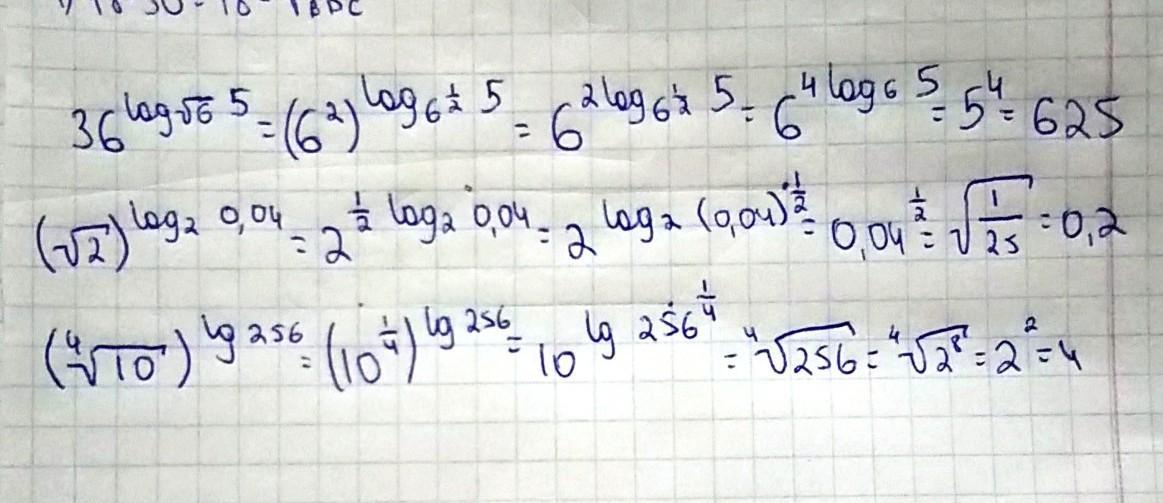 36^{log_{√6} 5} = (6²)^{log_{6^{1/2}} 5} = 6^{2 log_{6^{1/2}} 5} = 6^{4 log_6 5} = 5⁴ = 625
(√2)^{log_2 0,04} = 2^{1/2 log_2 0,04} = 2^{log_2 (0,04)^{1/2}} = 0,04^{1/2} = √(1/25) = 0,2
(⁴√10)^{lg 256} = (10^{1/4})^{lg 256} = 10^{lg 256^{1/4}} = ⁴√256 = ⁴√2⁸ = 2² = 4